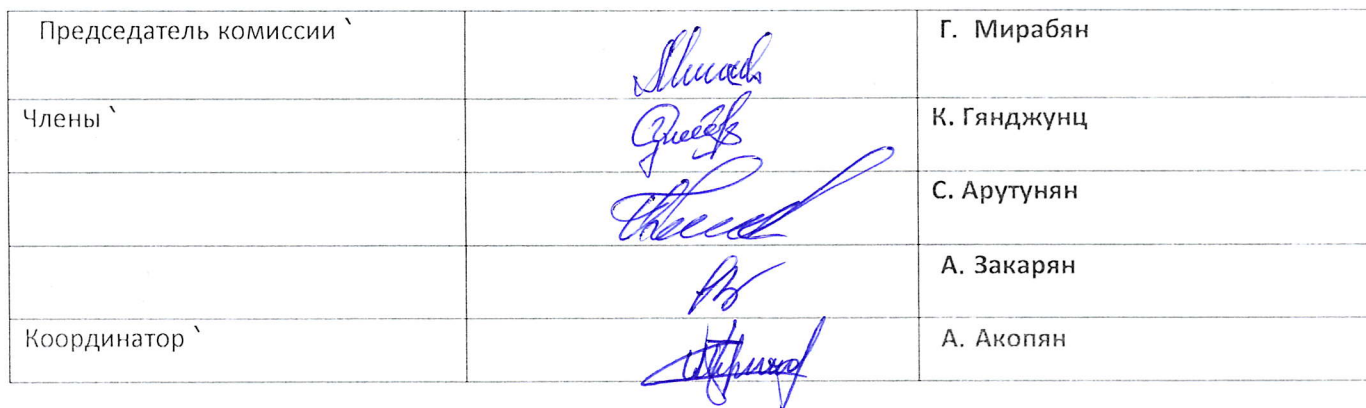 Председатель комиссии ՝ Г. Мирабян
Члены ՝ К. Гянджунц
С. Арутунян
А. Закарян
Координатор ՝ А. Акопян